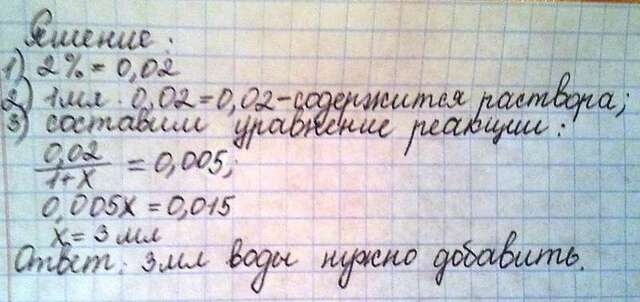 Решение:
1) 2% = 0,02
2) 1мл · 0,02 = 0,02 - содержится раствора;
3) составим уравнение реакции:
0,02
1+x
= 0,005;
0,005x = 0,015
x = 3 мл
Ответ: 3мл воды нужно добавить.